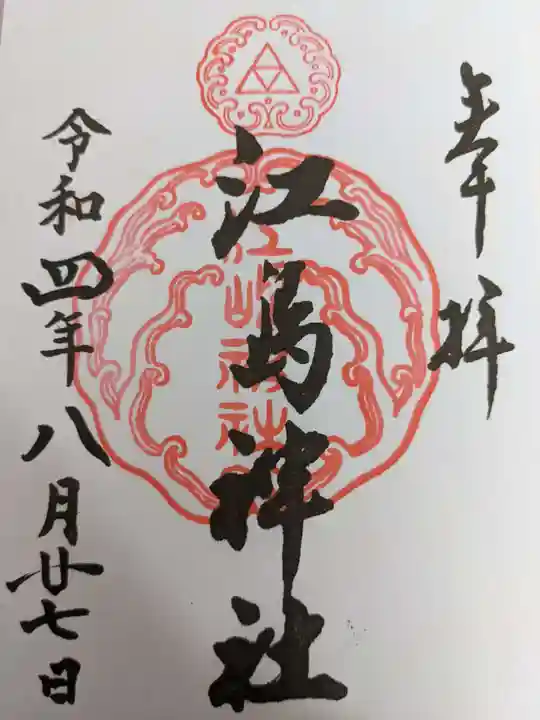 奉拝
江島神社
江嶋神社
令和四年八月廿七日